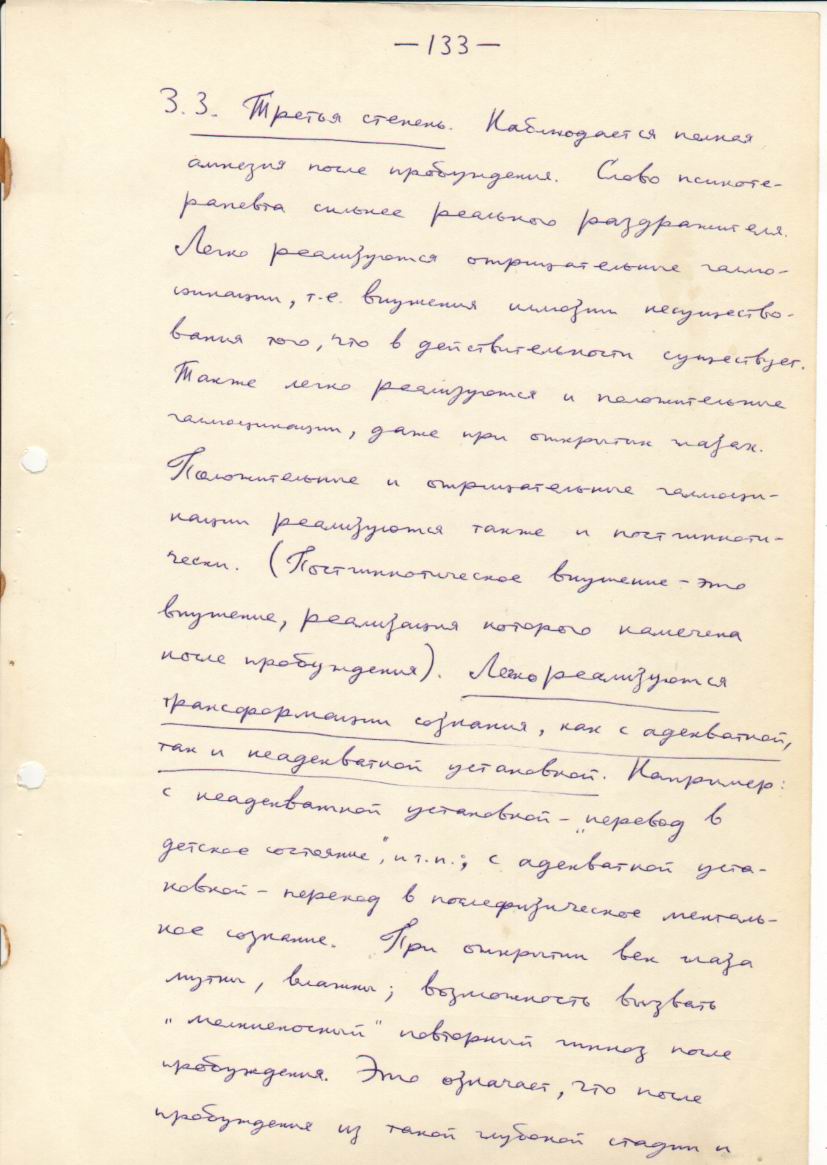 —133—
3.3. Третья степень. Наблюдается полная
амнезия после пробуждения. Слово психоте-
рапевта сильнее реального раздражителя.
Легко реализуются отрицательные галлю-
цинации, т.е. внушения иллюзии несущество-
вания того, что в действительности существует.
Также легко реализуются и положительные
галлюцинации, даже при открытых глазах.
Положительные и отрицательные галлюци-
нации реализуются также и постгипноти-
чески. (Постгипнотическое внушение - это
внушение, реализация которого намечена
после пробуждения). Легко реализуются
трансформации сознания, как с адекватной,
так и неадекватной установкой. Например:
с неадекватной установкой - „перевод в
детское состояние", и т.п.; с адекватной уста-
новкой - переход в послефизическое менталь-
ное сознание. При открытии век глаза
мутны, влажны; возможность вызвать
„молниеносный" повторный гипноз после
пробуждения. Это означает, что после
пробуждения из такой глубокой стадии и